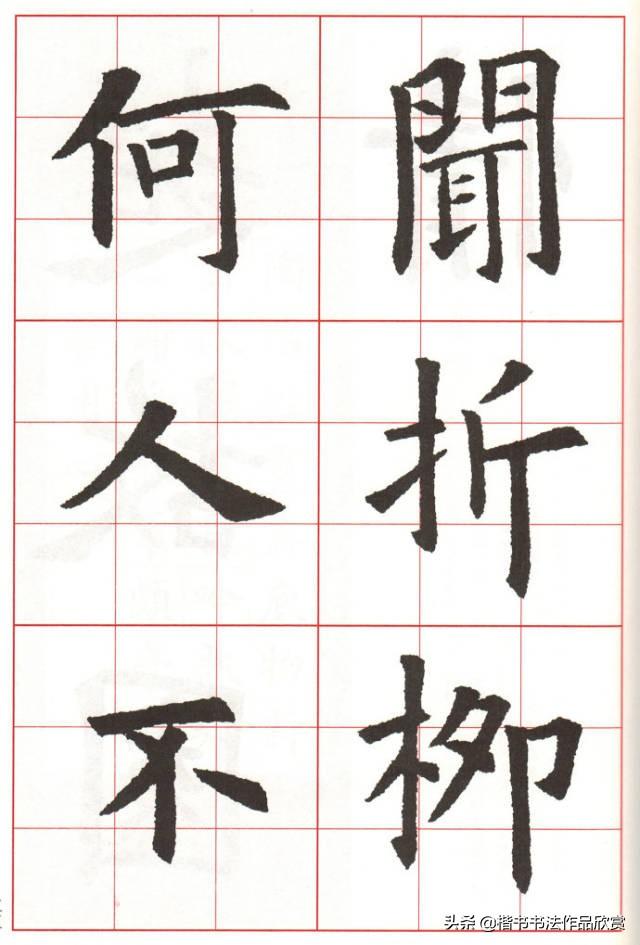 聞折柳
何人不
头条 @楷书书法作品欣赏